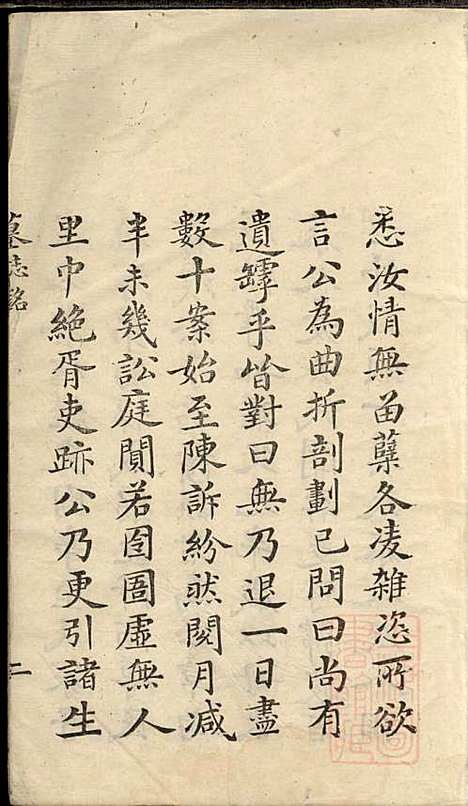 悉汝情無畱蘖各凌雜恣所欲
言公為曲折剖劃已問曰尚有
遺罅乎皆對曰無乃退一日盡
數十案始至陳訴紛然閱月减
半未幾訟庭閴若囹圄虛無人
里中絕胥吏跡公乃更引諸生
墓志銘
二